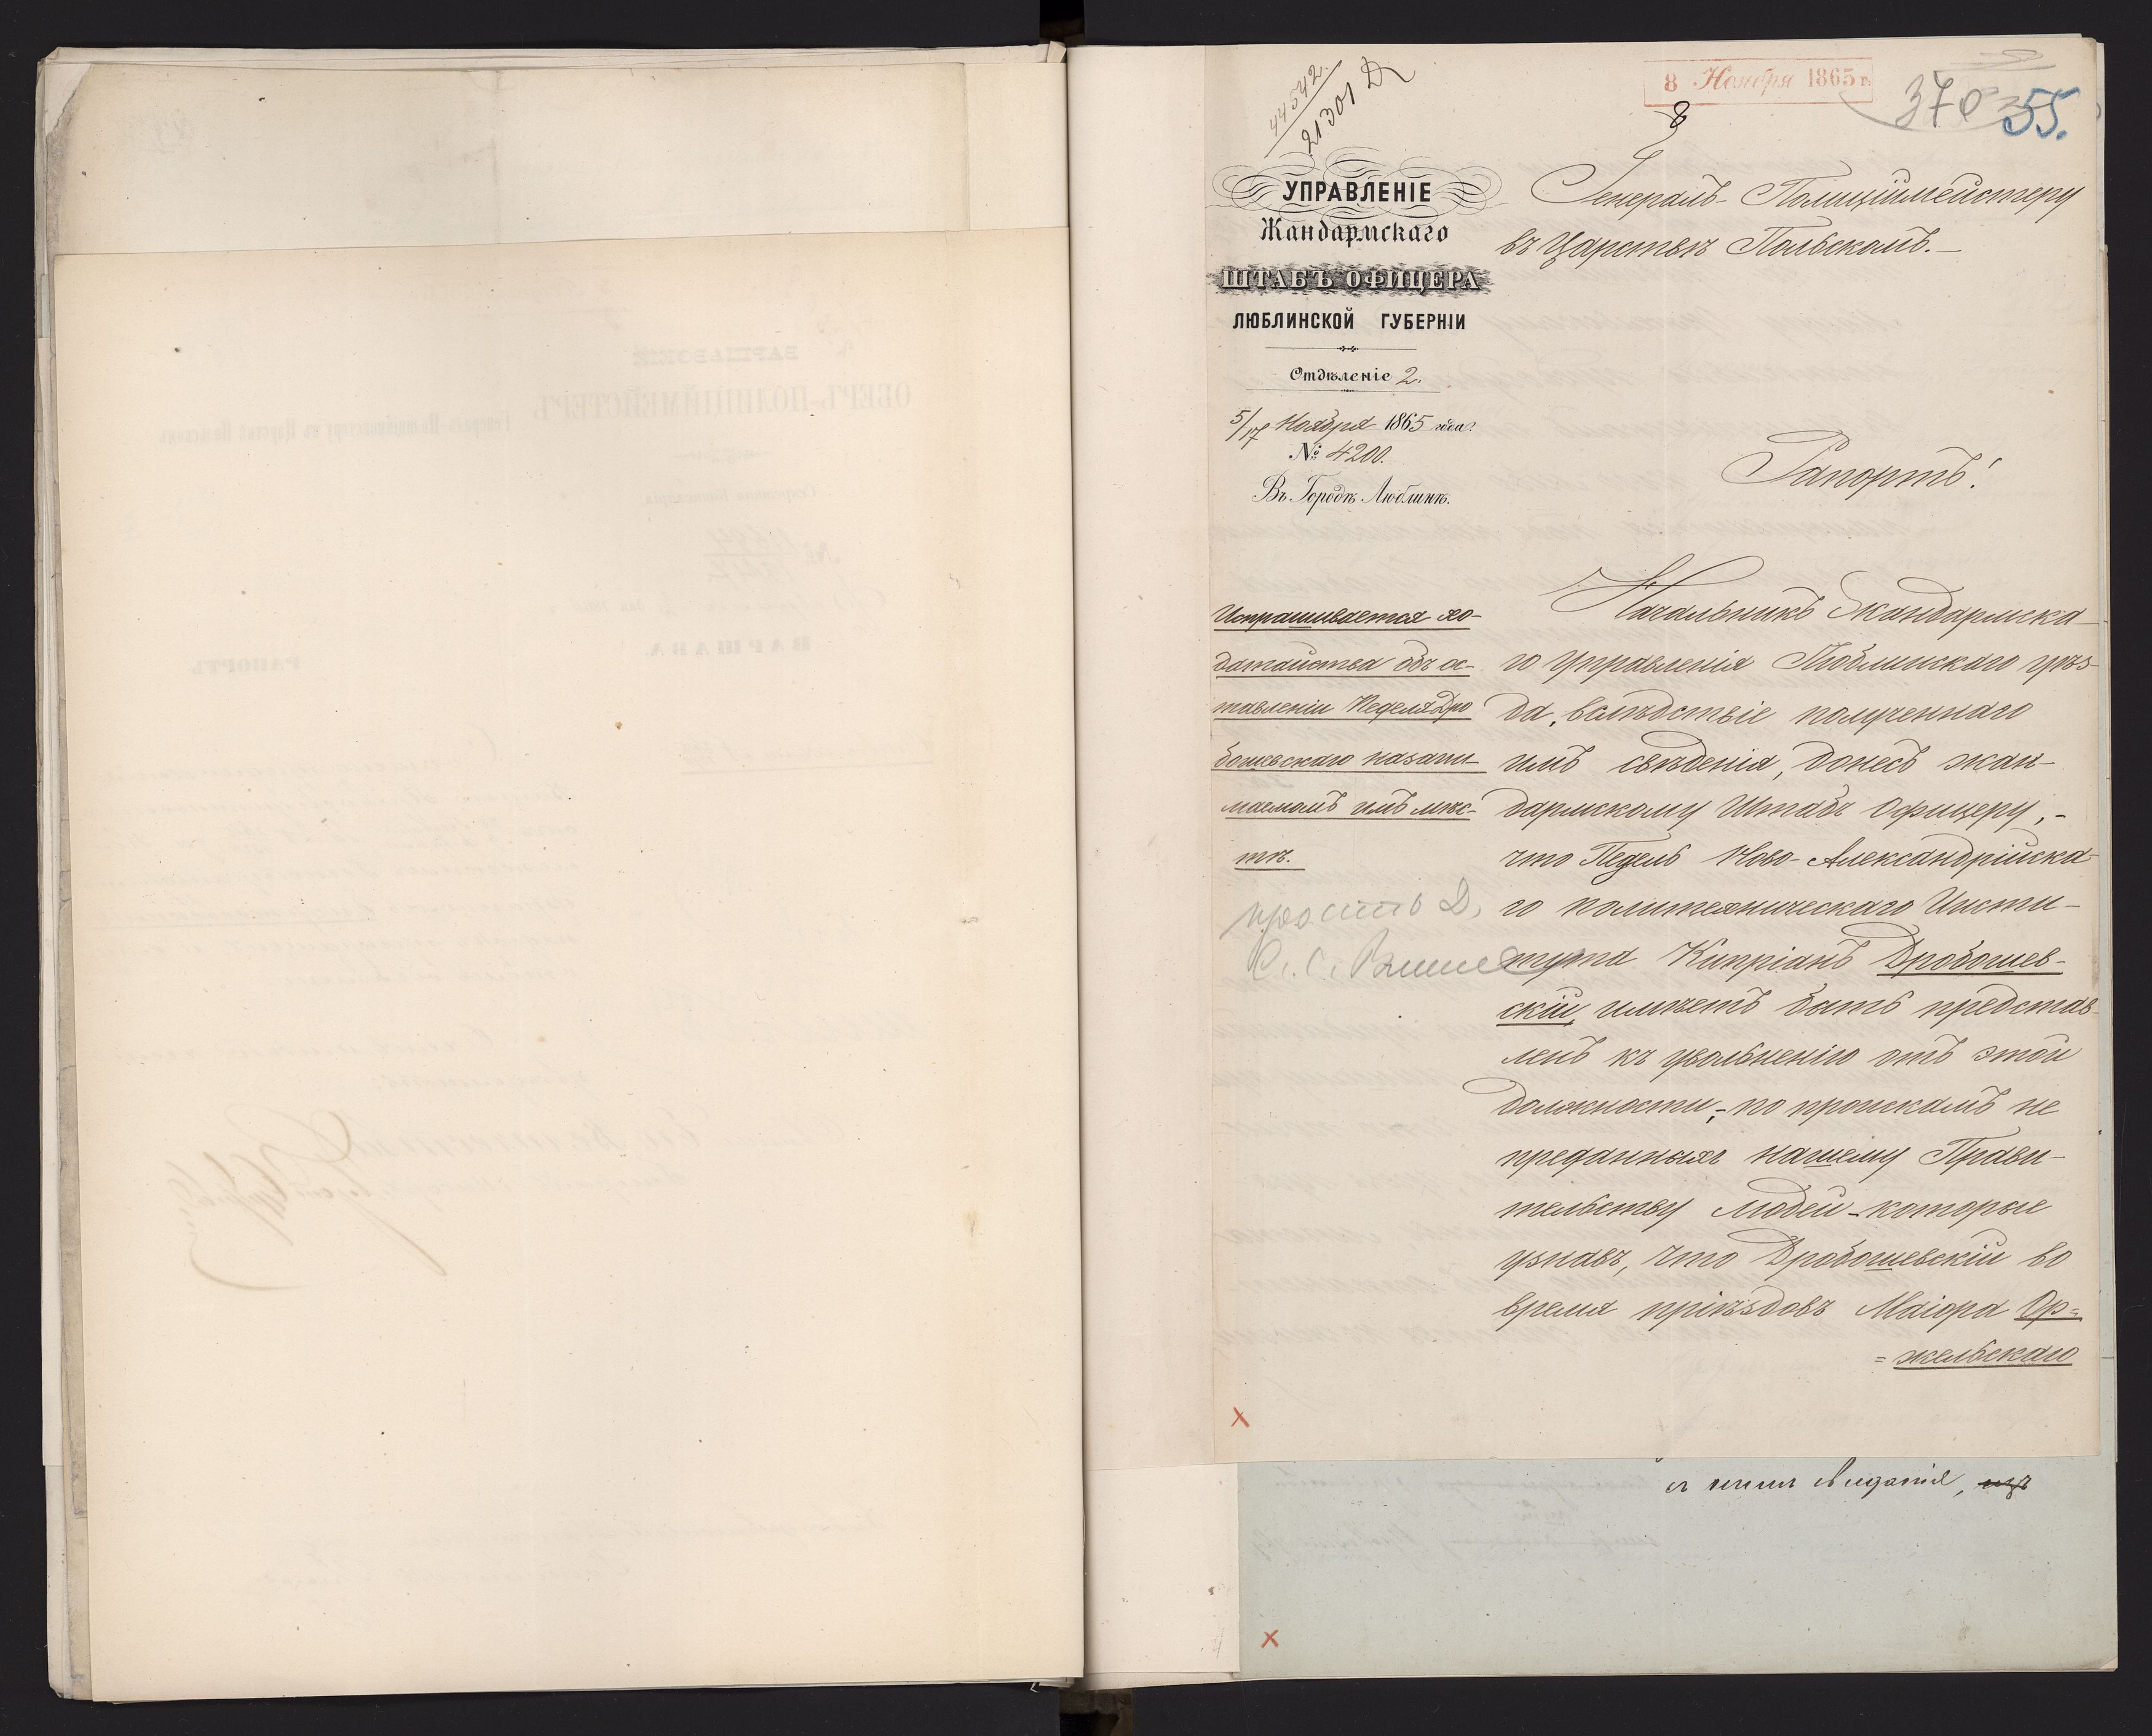 44542.
21301 Д
8 Ноября 1865 г.
8
370
55.
УПРАВЛЕНІЕ
Жандармскаго
ШТАБЪ ОФИЦЕРА
ЛЮБЛИНСКОЙ ГУБЕРНІИ
Отдѣленіе 2.
5/17 Ноября 1865 года
№ 4200.
Въ Городѣ Люблинѣ.
Генералъ-Полиціймейстеру
въ Царствѣ Польскомъ.—
Рапортъ!
Испрашивается хо-
датайства объ ос-
тавленіи Педеля Дро
бошевскаго на зани-
маемомъ имъ мѣс-
тѣ.
Начальникъ Жандармска-
го Управленія Люблинскаго уѣз-
да, вслѣдствіе полученнаго
имъ свѣденія, донесъ жан-
дармскому Штабъ Офицеру,-
что Педель Ново-Александрійска-
го политехническаго Инсти-
тута Кипріанъ Дробошев-
скій, имѣетъ быть представ-
ленъ къ увольненію отъ этой
должности,-по проискамъ не
преданныхъ нашему Прави-
тельству людей-которые
узнавъ, что Дробошевскій во
время пріѣздовъ Маіора Ор=
=жельскаго
ВАРШАВСКІЙ
ОБЕРЪ-ПОЛИЦІЙМЕЙСТЕРЪ
Генералъ-Полиціймейстеру въ Царствѣ Польскомъ
ВАРШАВА
РАПОРТЪ